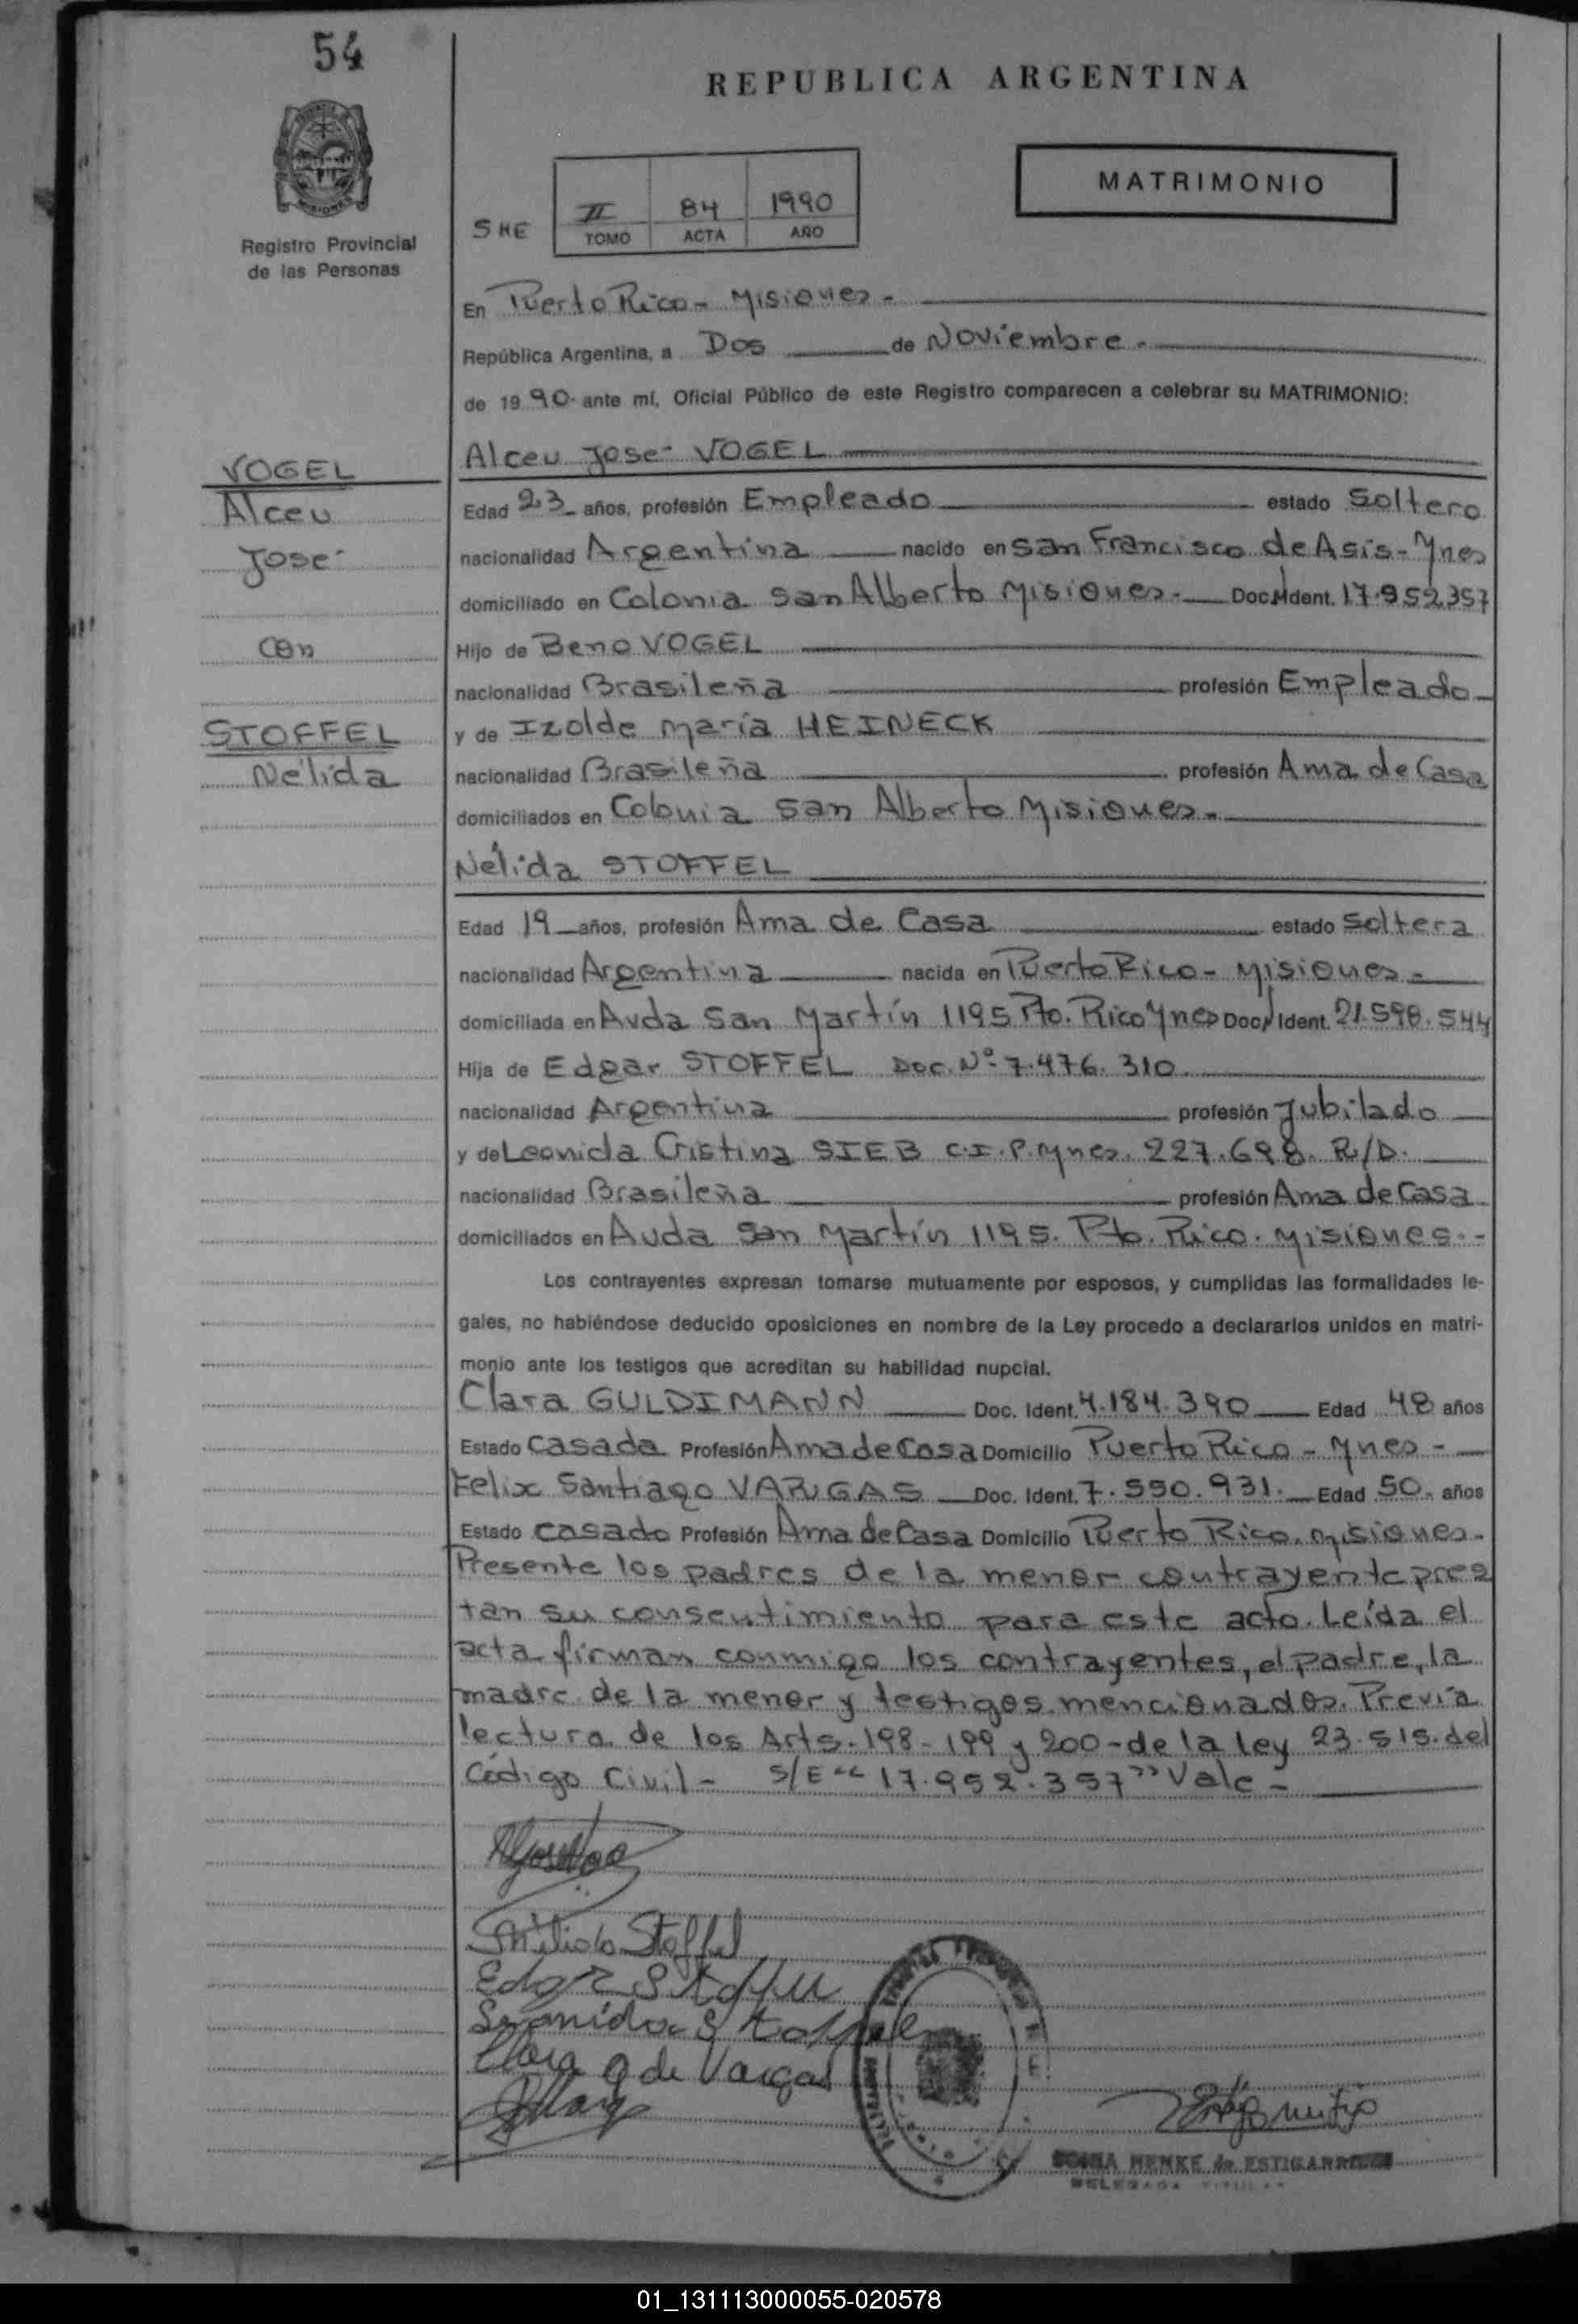 54
REPUBLICA ARGENTINA
MISIONES
Registro Provincial
de las Personas
SHE
II 84 1990
TOMO ACTA AÑO
MATRIMONIO
En Puerto Rico - Misiones -
República Argentina, a Dos de Noviembre -
de 1990 ante mí, Oficial Público de este Registro comparecen a celebrar su MATRIMONIO:
Alceu José VOGEL
VOGEL
Alceu
José
con
STOFFEL
Nélida
Edad 23 años, profesión Empleado estado Soltero
nacionalidad Argentina nacido en San Francisco de Asis - Mnes
domiciliado en Colonia San Alberto Misiones - Doc. Ident. 17.952.357
Hijo de Beno VOGEL
nacionalidad Brasileña profesión Empleado
y de Izolde María HEINECK
nacionalidad Brasileña profesión Ama de Casa
domiciliados en Colonia San Alberto Misiones -
Nélida STOFFEL
Edad 19 años, profesión Ama de Casa estado Soltera
nacionalidad Argentina nacida en Puerto Rico - Misiones -
domiciliada en Avda San Martín 1195 Pto. Rico Mnes Doc. Ident. 21.598.544
Hija de Edgar STOFFEL Doc. Nº 7.476.310.
nacionalidad Argentina profesión Jubilado
y de Leonida Cristina SIEB C.I.P. Mnes. 227.698. R/D.
nacionalidad Brasileña profesión Ama de Casa
domiciliados en Avda San Martín 1195. Pto. Rico. Misiones. -
Los contrayentes expresan tomarse mutuamente por esposos, y cumplidas las formalidades le-
gales, no habiéndose deducido oposiciones en nombre de la Ley procedo a declararlos unidos en matri-
monio ante los testigos que acreditan su habilidad nupcial.
Clara GULDIMANN Doc. Ident. 4.184.390 Edad 48 años
Estado Casada Profesión Ama de Casa Domicilio Puerto Rico - Mnes -
Felix Santiago VARGAS Doc. Ident. 7.550.931. Edad 50. años
Estado Casado Profesión Ama de Casa Domicilio Puerto Rico. Misiones.
Presente los padres de la menor contrayente pres
tan su consentimiento para este acto. Leída el
acta firman conmigo los contrayentes, el padre, la
madre de la menor y testigos mencionados. Previa
lectura de los Arts. 198 - 199 y 200 - de la Ley 23.515. del
Código Civil - S/E "17.952.357" Vale -
Nélida Stoffel
Edgar Stoffel
Leonida Stoffel
Clara G de Vargas
SONIA HENKE de ESTIGARRIBIA
DELEGADA TITULAR
01_131113000055-020578